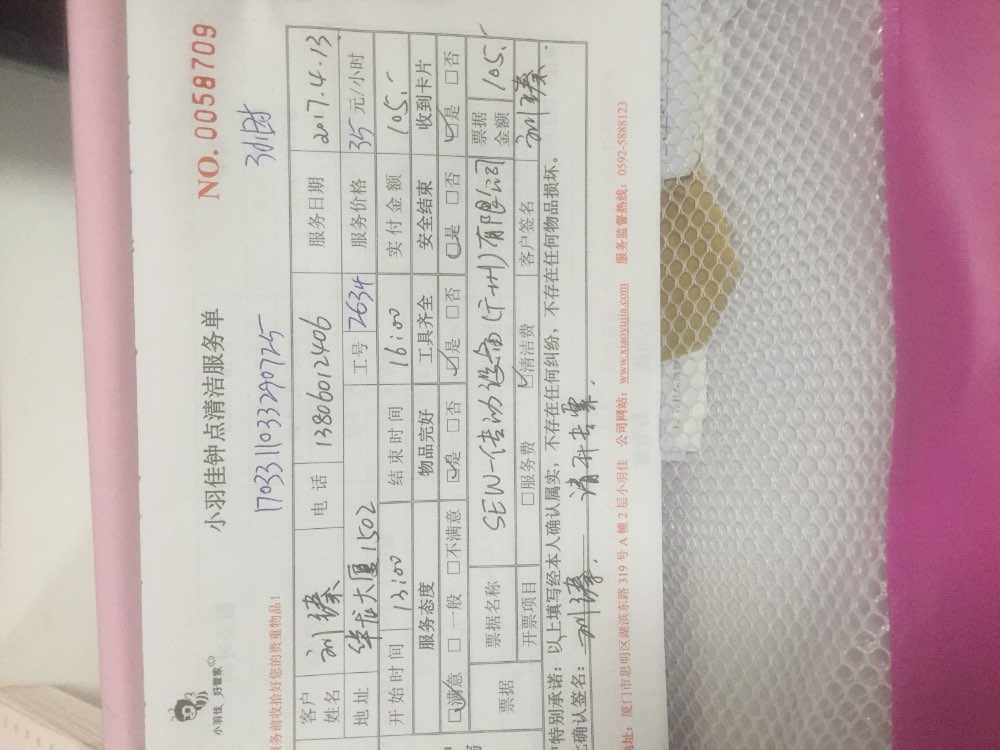 小羽佳 好管家
小羽佳钟点清洁服务单
NO. 0058709
1703311033290725
3小时
务前收拾好您的贵重物品!
客户姓名 刘臻 电话 13806012406 服务日期 2017.4.13
地址 华龙大厦1502 工号 2634 服务价格 35元/小时
开始时间 13:00 结束时间 16:00 实付金额 105.-
服务态度 物品完好 工具齐全 安全结束 收到卡片
☑满意 □一般 □不满意 ☑是 □否 ☑是 □否 ☑是 □否 ☑是 □否
票据 票据名称 SEW-传动设备(广州)有限公司 票据金额 105.-
开票项目 □服务费 ☑清洁费 客户签名 刘臻
特别承诺:以上填写经本人确认属实,不存在任何纠纷,不存在任何物品损坏。
确认签名: 刘臻. 请开专票.
地址: 厦门市思明区湖滨东路319号A幢2层小羽佳 公司网站: www.xiaoyujia.com 服务监督热线: 0592-5888123